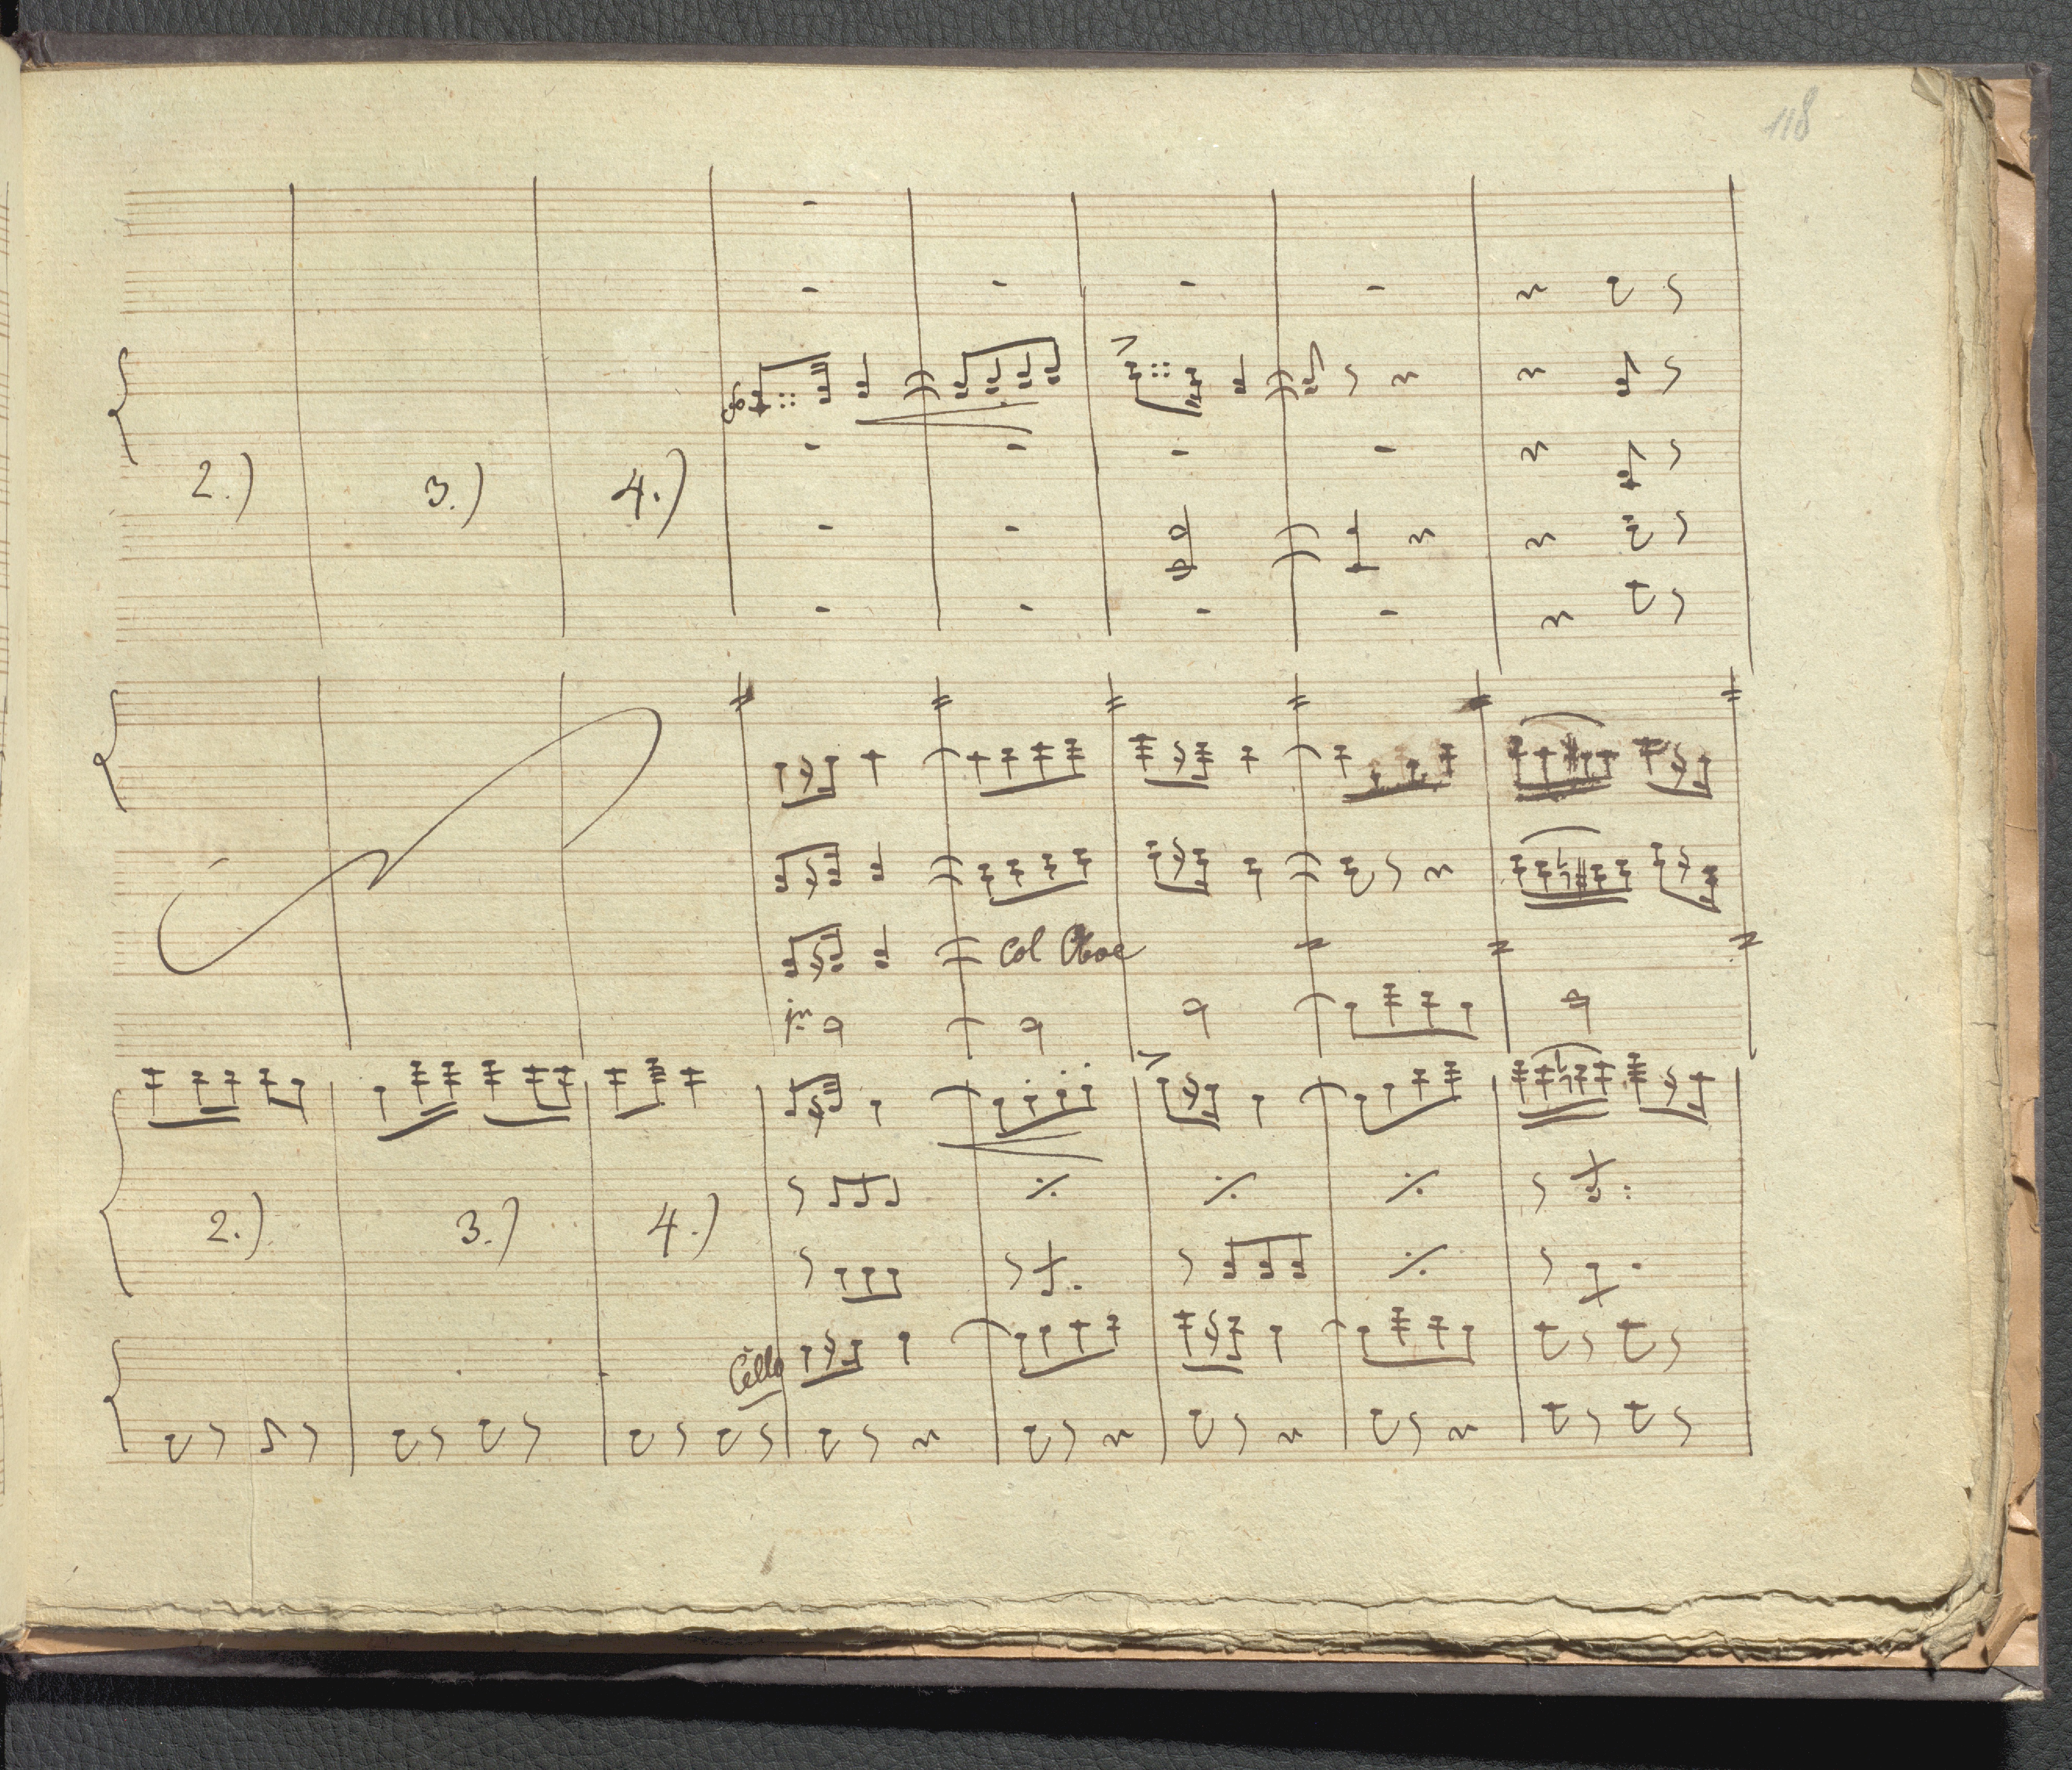 118
2.) 3.) 4.)
Col Oboe
2.) 3.) 4.)
Cello